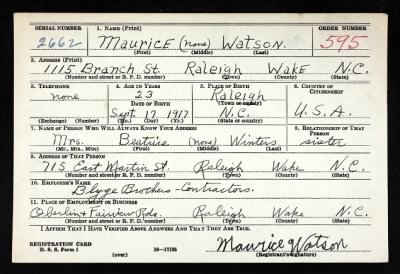 SERIAL NUMBER 1. NAME (Print) ORDER NUMBER
2662 Maurice (none) Watson 595
(First) (Middle) (Last)
2. ADDRESS (Print)
1115 Branch St. Raleigh Wake N.C.
(Number and street or R. F. D. number) (Town) (County) (State)
3. TELEPHONE 4. AGE IN YEARS 5. PLACE OF BIRTH 6. COUNTRY OF CITIZENSHIP
none 23 Raleigh
DATE OF BIRTH (Town or county)
Sept. 17 1917 N.C. U.S.A.
(Exchange) (Number) (Mo.) (Day) (Yr.) (State or country)
7. NAME OF PERSON WHO WILL ALWAYS KNOW YOUR ADDRESS 8. RELATIONSHIP OF THAT PERSON
Mrs. Beatrice (none) Winters sister
(Mr., Mrs., Miss) (First) (Middle) (Last)
9. ADDRESS OF THAT PERSON
715 East Martin St. Raleigh Wake N.C.
(Number and street or R. F. D. number) (Town) (County) (State)
10. EMPLOYER'S NAME
Brothers - Contractors.
11. PLACE OF EMPLOYMENT OR BUSINESS
Oberlin & Fairview Rds. Raleigh Wake N.C.
(Number and street or R. F. D. number) (Town) (County) (State)
I AFFIRM THAT I HAVE VERIFIED ABOVE ANSWERS AND THAT THEY ARE TRUE.
REGISTRATION CARD
D. S. S. Form 1 16-17105 Maurice Watson
(over) (Registrant's signature)